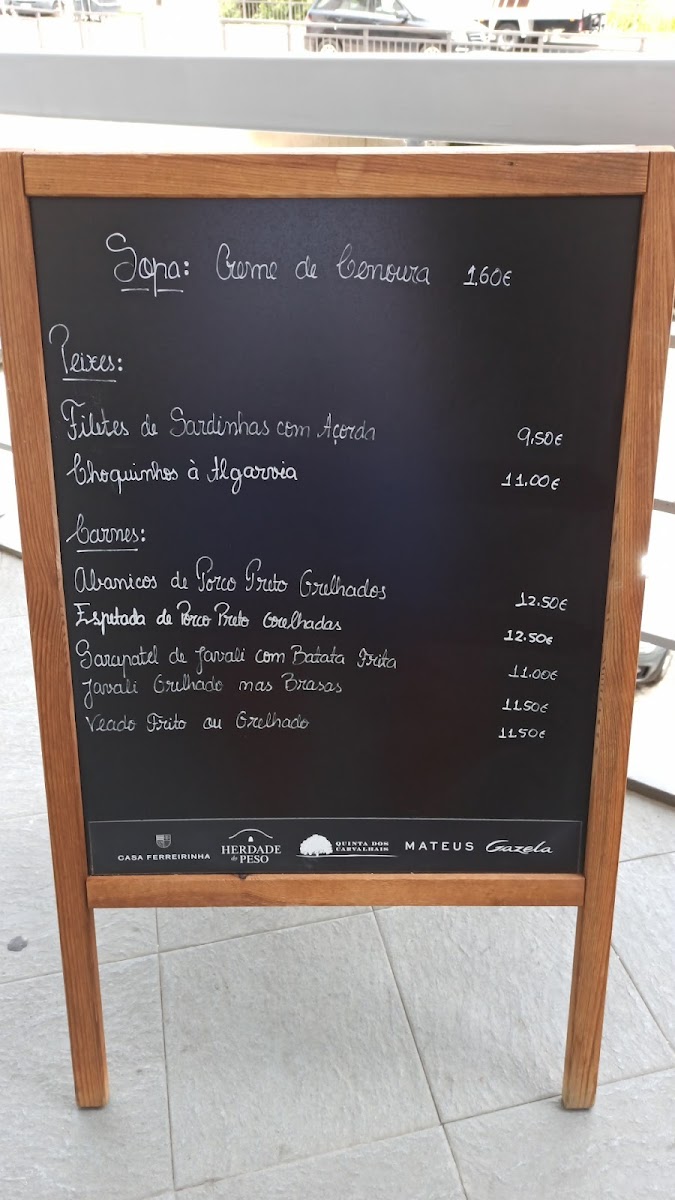 Sopa: Creme de Cenoura 1.60€
Peixes:
Filetes de Sardinhas com Açorda 9.50€
Choquinhos à Algarvia 11.00€
Carnes:
Abanicos de Porco Preto Grelhados 12.50€
Espetada de Porco Preto Grelhadas 12.50€
Sarapatel de Javali com Batata Frita 11.00€
Javali Grelhado nas Brasas 11.50€
Veado Frito ou Grelhado 11.50€
CASA FERREIRINHA HERDADE do PESO QUINTA DOS CARVALHAIS MATEUS Gazela